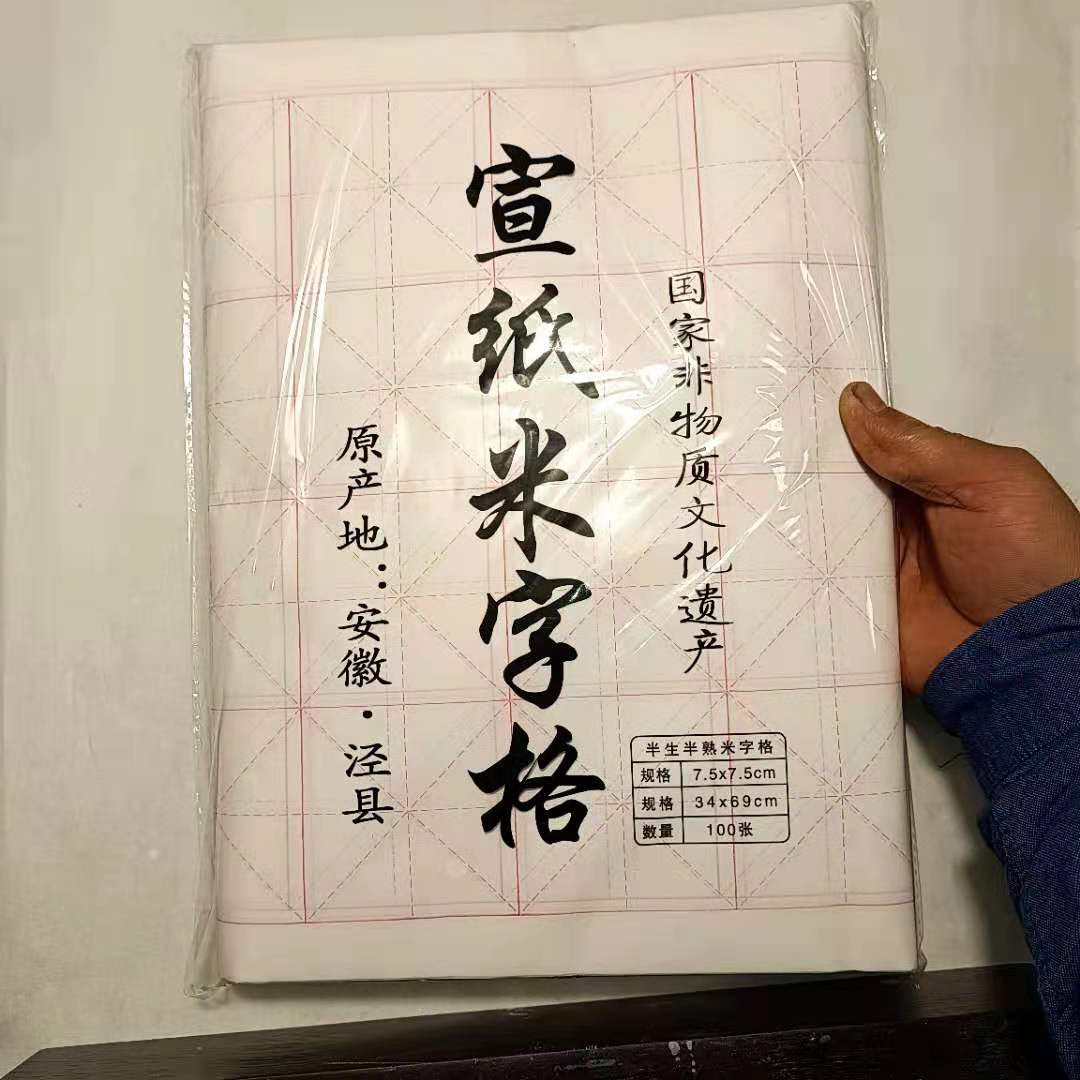 国家非物质文化遗产
宣纸米字格
原产地：安徽·泾县
半生半熟米字格
规格 7.5x7.5cm
规格 34x69cm
数量 100张